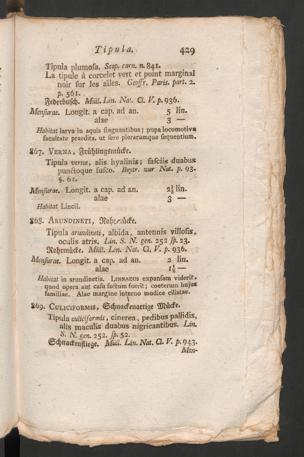 Tipula. 429
Tipula plumosa. Scop. carn. n. 841.
La tipule à corcelet vert et point marginal
noir sur les ailes. Geoffr. Paris. part. 2.
p. 561.
Federbusch. Müll. Lin. Nat. Cl. V. p. 936.
Mensurae. Longit. a cap. ad an. 5 lin.
alae 3 —
Habitat larva in aquis stagnantibus; pupa locomotiva
facultate praedita, ut fere plerarumque sequentium.
867. VERNA, Frühlingsmücke.
Tipula verna, alis hyalinis; fasciis duabus
punctoque fusco. Beytr. zur Nat. p. 93.
§. 61.
Mensurae. Longit. a cap. ad an. 2½ lin.
alae 3 —
Habitat Lincii.
868. ARUNDINETI, Rohrmücke.
Tipula arundineti, albida, antennis villosis,
oculis atris. Lin. S. N. gen. 252 sp. 23.
Rohrmücke. Müll. Lin. Nat. Cl. V. p. 936.
Mensurae. Longit. a cap. ad an. 2 lin.
alae 1½ —
Habitat in arundinetis. LINNAEUS expansam viderit,
quod opera aut casu factum fuerit; coeterum hujus
familiae. Alae margine interno modice ciliatae.
869. CULICIFORMIS, Schnackenartige Mücke.
Tipula culiciformis, cinerea, pedibus pallidis,
alis maculis duabus nigricantibus. Lin.
S. N. gen. 252. sp. 52.
Schnackenfliege. Müll. Lin. Nat. Cl. V. p. 943.
Men-